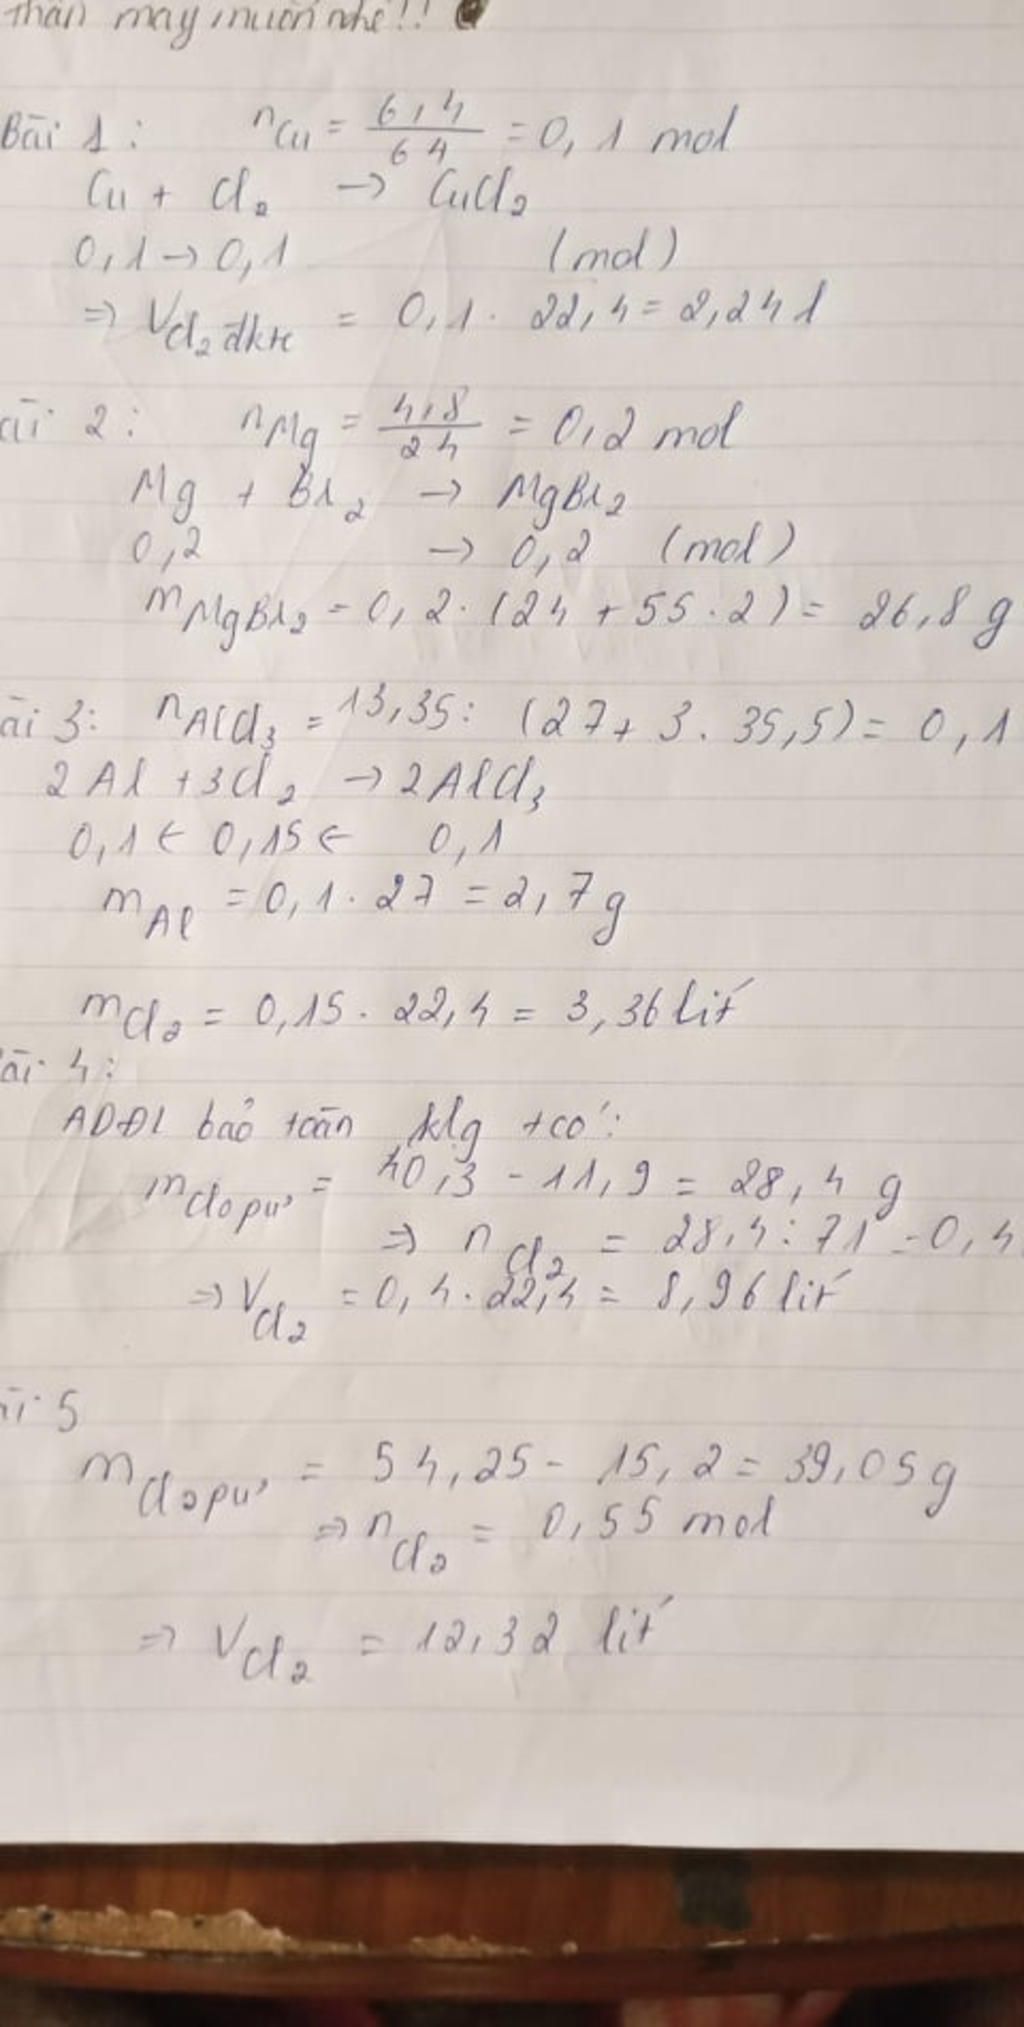 thân may muốn nhé!!
Bài 1: nCu = 6,4/64 = 0,1 mol
Cu + Cl2 → CuCl2
0,1 → 0,1 (mol)
=> VCl2 đktc = 0,1 . 22,4 = 2,24 l
ài 2: nMg = 4,8/24 = 0,2 mol
Mg + Br2 → MgBr2
0,2 → 0,2 (mol)
mMgBr2 = 0,2 . (24 + 55 . 2) = 26,8 g
ài 3: nAlCl3 = 13,35 : (27 + 3 . 35,5) = 0,1
2Al + 3Cl2 → 2AlCl3
0,1 ← 0,15 ← 0,1
mAl = 0,1 . 27 = 2,7 g
mCl2 = 0,15 . 22,4 = 3,36 lít
ài 4:
ADĐL bảo toàn klg t có:
mClo pư = 40,3 - 11,9 = 28,4 g
=> nCl2 = 28,4 : 71 = 0,4
=> VCl2 = 0,4 . 22,4 = 8,96 lít
ài 5
mClo pư = 54,25 - 15,2 = 39,05 g
=> nCl2 = 0,55 mol
=> VCl2 = 12,32 lít